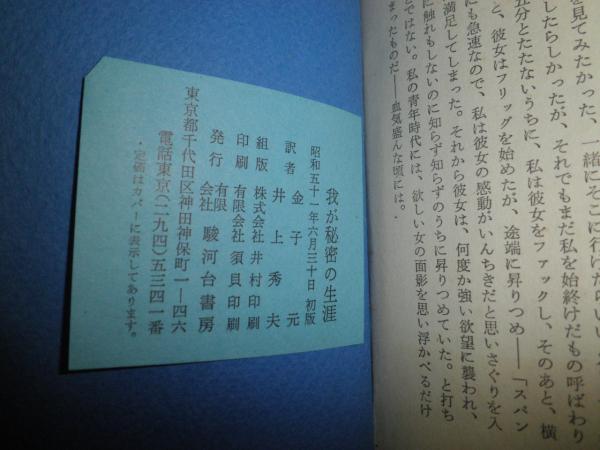 を見てみたかった、一緒にそこに行けたらいい
したらしかったが、それでもまだ私を始終けだもの呼ばわり
五分とたたないうちに、私は彼女をファックし、そのあと、横
と、彼女はフリッグを始めたが、途端に昇りつめ――「スパン
にも急速なので、私は彼女の感動がいんちきだと思いさぐりを入
満足してしまった。それから彼女は、何度か強い欲望に襲われ、
に触れもしないのに知らず知らずのうちに昇りつめていた。と打ち
とではない。私の青年時代には、欲しい女の面影を思い浮かべるだけ
まったものだ――血気盛んな頃には。
我が秘密の生涯
昭和五十一年六月三十日 初版
訳者 金子元
井上秀夫
組版 株式会社井村印刷
印刷 有限会社須貝印刷
発行 有限会社 駿河台書房
東京都千代田区神田神保町一―四六
電話東京(二九四)五三四一番
・定価はカバーに表示してあります。